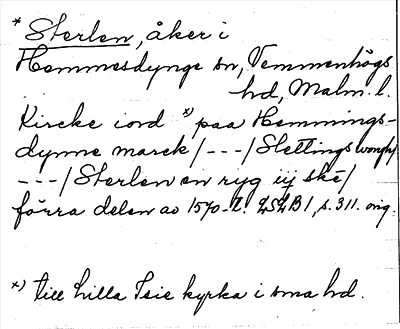 * Sterlen, åker i
Hemmesdynge sn, Vemmenhögs
hd, Malm. l.
Kircke iord *) paa Hemmings-
dynne marck/---/Slettings wongh/
---/Sterlen en ryg iij ske/
förra delen av 1570-t. LSLB1, s. 311. orig.
*) till Lilla Isie kyrka i sma hd.